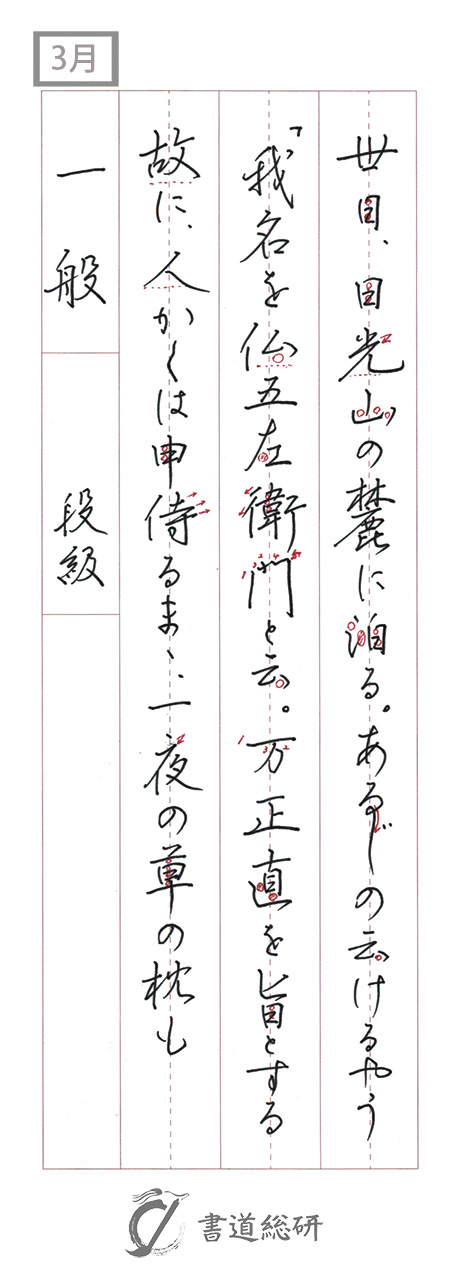 3月
丗日、日光山の麓に泊る。あるじの云けるやう
「我名を仏五左衛門と云。万正直を旨とする
故に、人かくは申侍るまゝ、一夜の草の枕も
一般
段級
書道総研